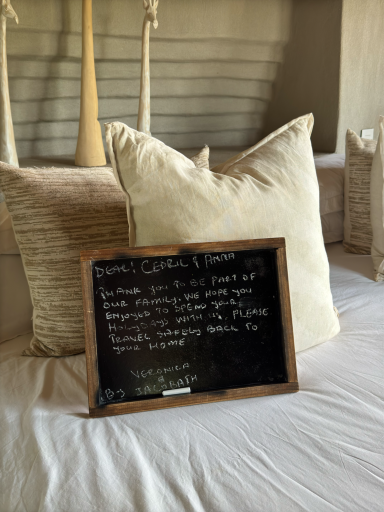 DEAR! CEDRIC & ANNA
THANK YOU TO BE PART OF
OUR FAMILY. WE HOPE YOU
ENJOYED TO SPEND YOUR
HOLYDAYS WITH US. PLEASE
TRAVEL SAFELY BACK TO
YOUR HOME
VERONICA
&
By JACOBETH